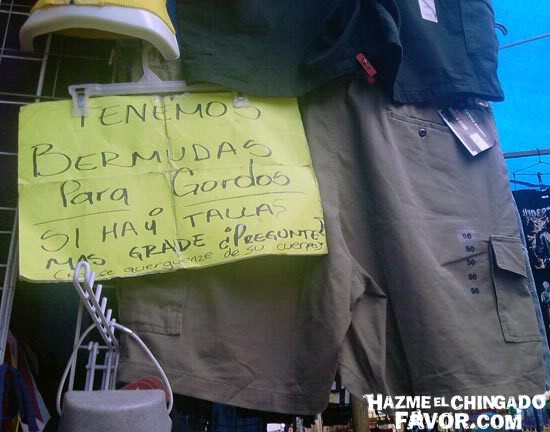 TENEMOS
BERMUDAS
Para Gordos
SI HAY TALLAS
MAS GRADE ¿PREGUNTE?
(No se averguenze de su cuerpo)
50
50
50
50
50
HAZME EL CHINGADO
FAVOR.COM